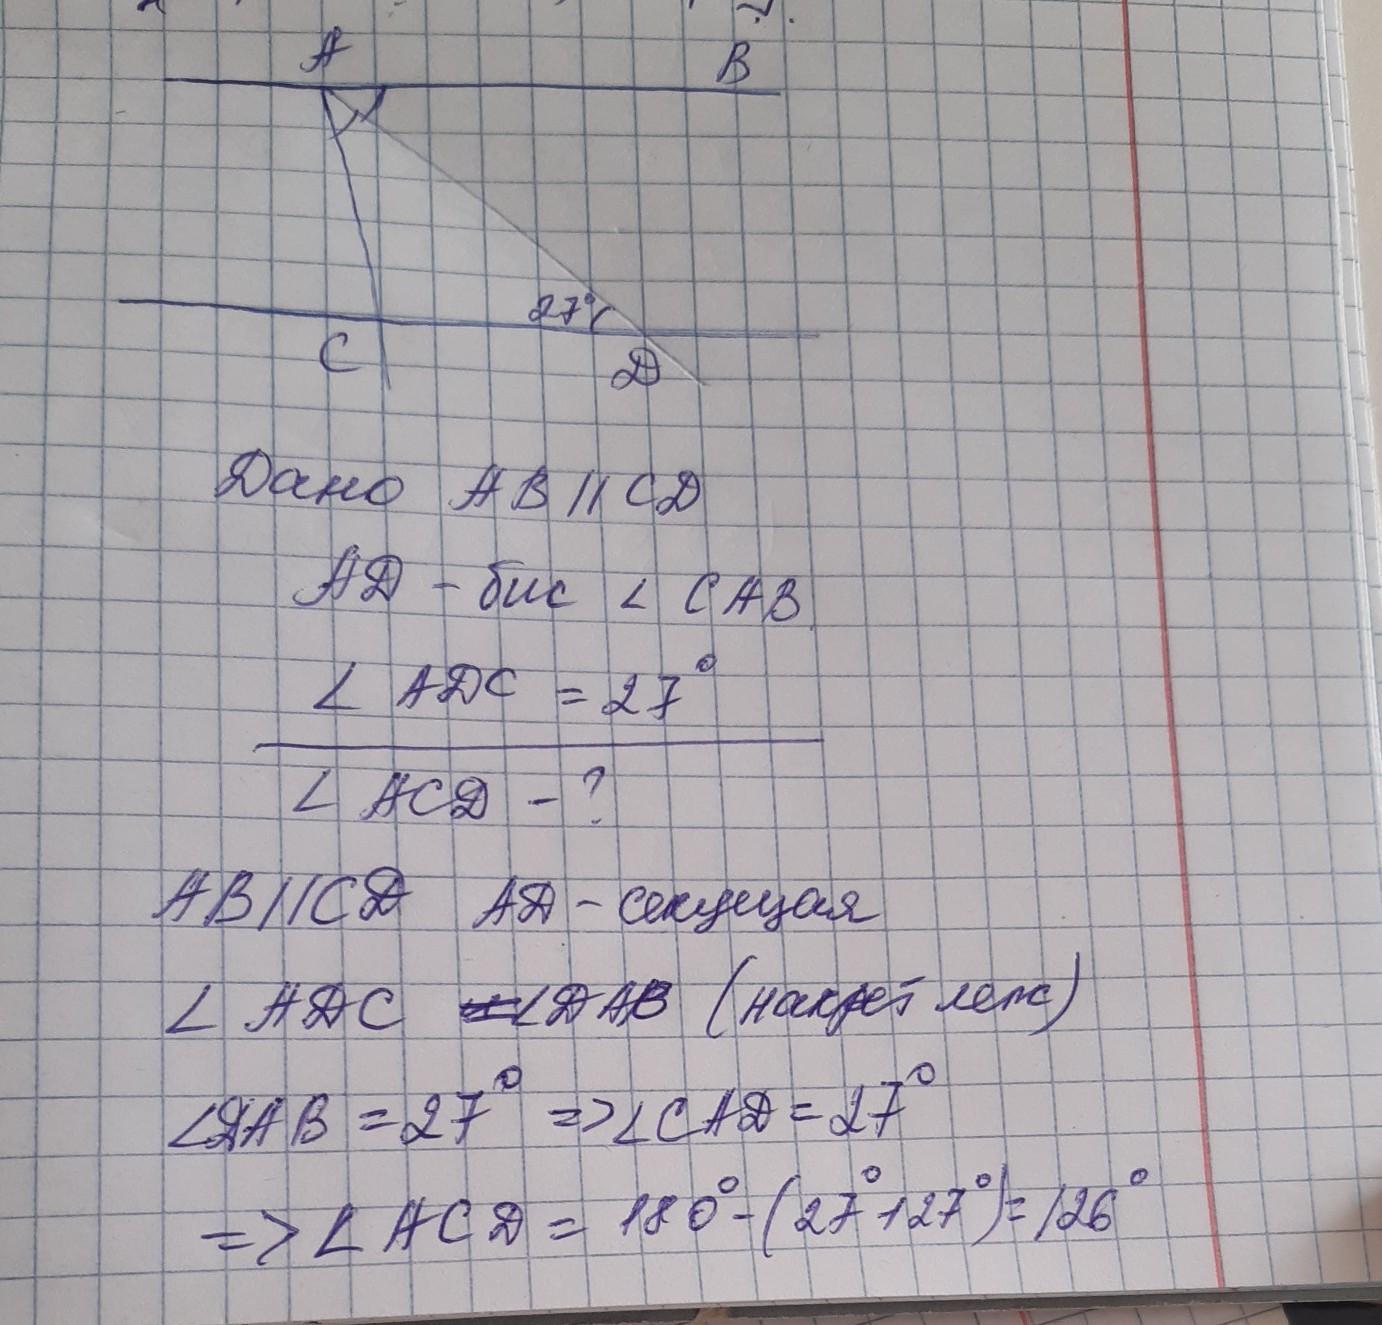 A B
27°
C D
Дано AB || CD
AD - бис ∠ CAB
∠ ADC = 27°
∠ ACD - ?
AB || CD AD - секущая
∠ ADC = ∠DAB (накрест леж)
∠DAB = 27° => ∠CAD = 27°
=> ∠ ACD = 180° - (27° + 27°) = 126°